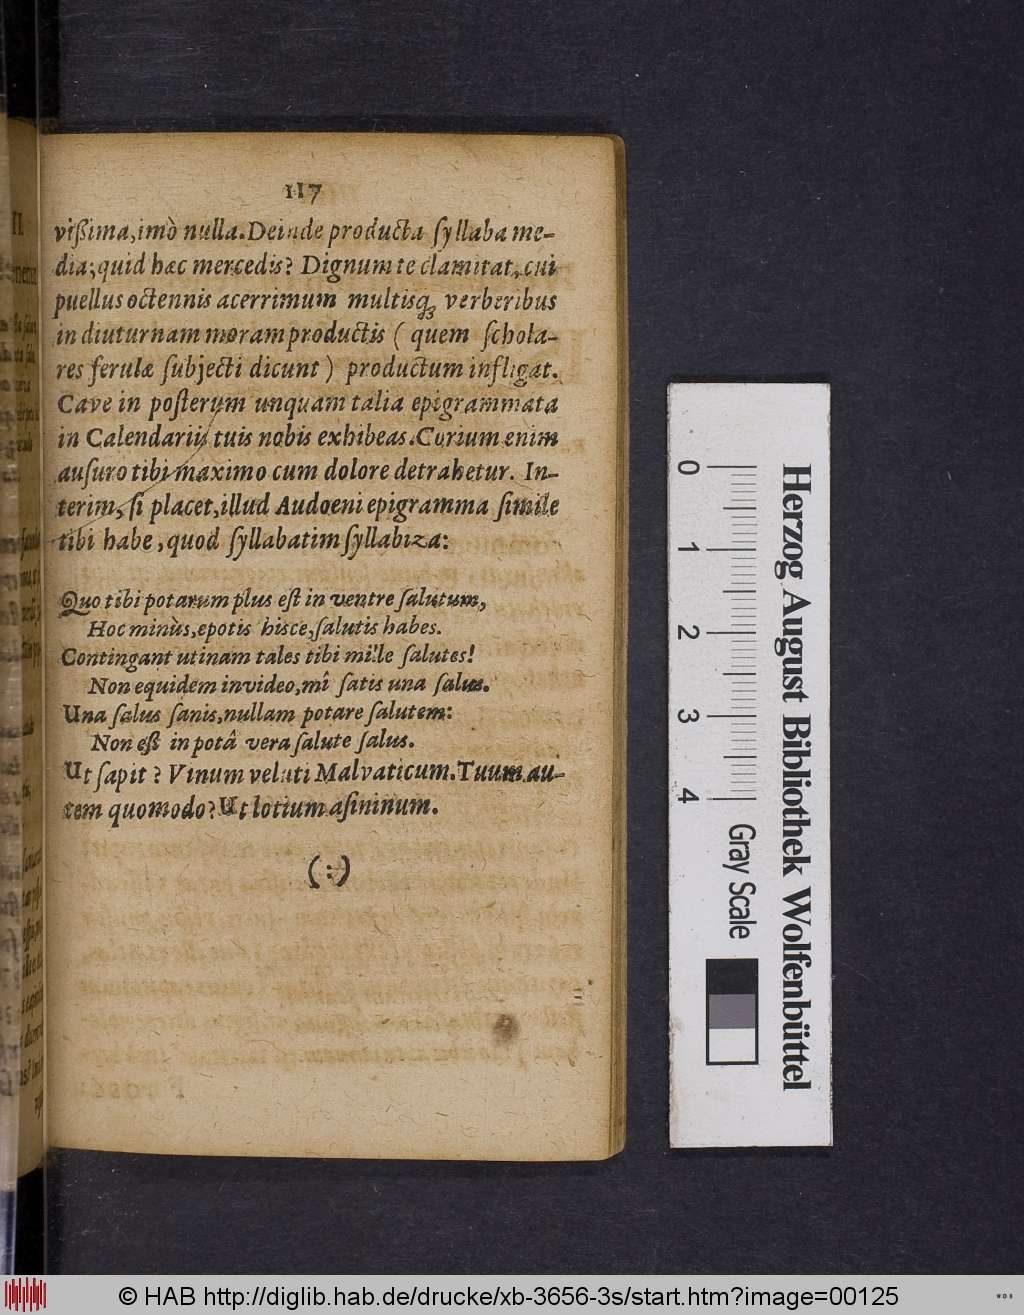 117
vißima, imò nulla. Deinde producta ſyllaba me-
dia; quid hæc mercedis? Dignum te clamitat, cui
puellus octennis acerrimum multisq́; verberibus
in diuturnam moram productis ( quem ſchola-
res ferulæ ſubjecti dicunt ) productum infligat.
Cave in poſterum unquam talia epigrammata
in Calendariis tuis nobis exhibeas. Corium enim
auſuro tibi maximo cum dolore detrahetur. In-
terim, ſi placet, illud Audoeni epigramma ſimile
tibi habe, quod ſyllabatim ſyllabiza:
Quo tibi potarum plus eſt in ventre ſalutum,
Hoc minùs, epotis hisce, ſalutis habes.
Contingant utinam tales tibi mille ſalutes!
Non equidem invideo, mî ſatis una ſalus.
Una ſalus ſanis, nullam potare ſalutem:
Non eſt in potâ vera ſalute ſalus.
Ut ſapit? Vinum veluti Malvaticum. Tuum au-
tem quomodo? Ut lotium aſininum.
(:)
Herzog August Bibliothek Wolfenbüttel
0 1 2 3 4
Gray Scale
© HAB http://diglib.hab.de/drucke/xb-3656-3s/start.htm?image=00125